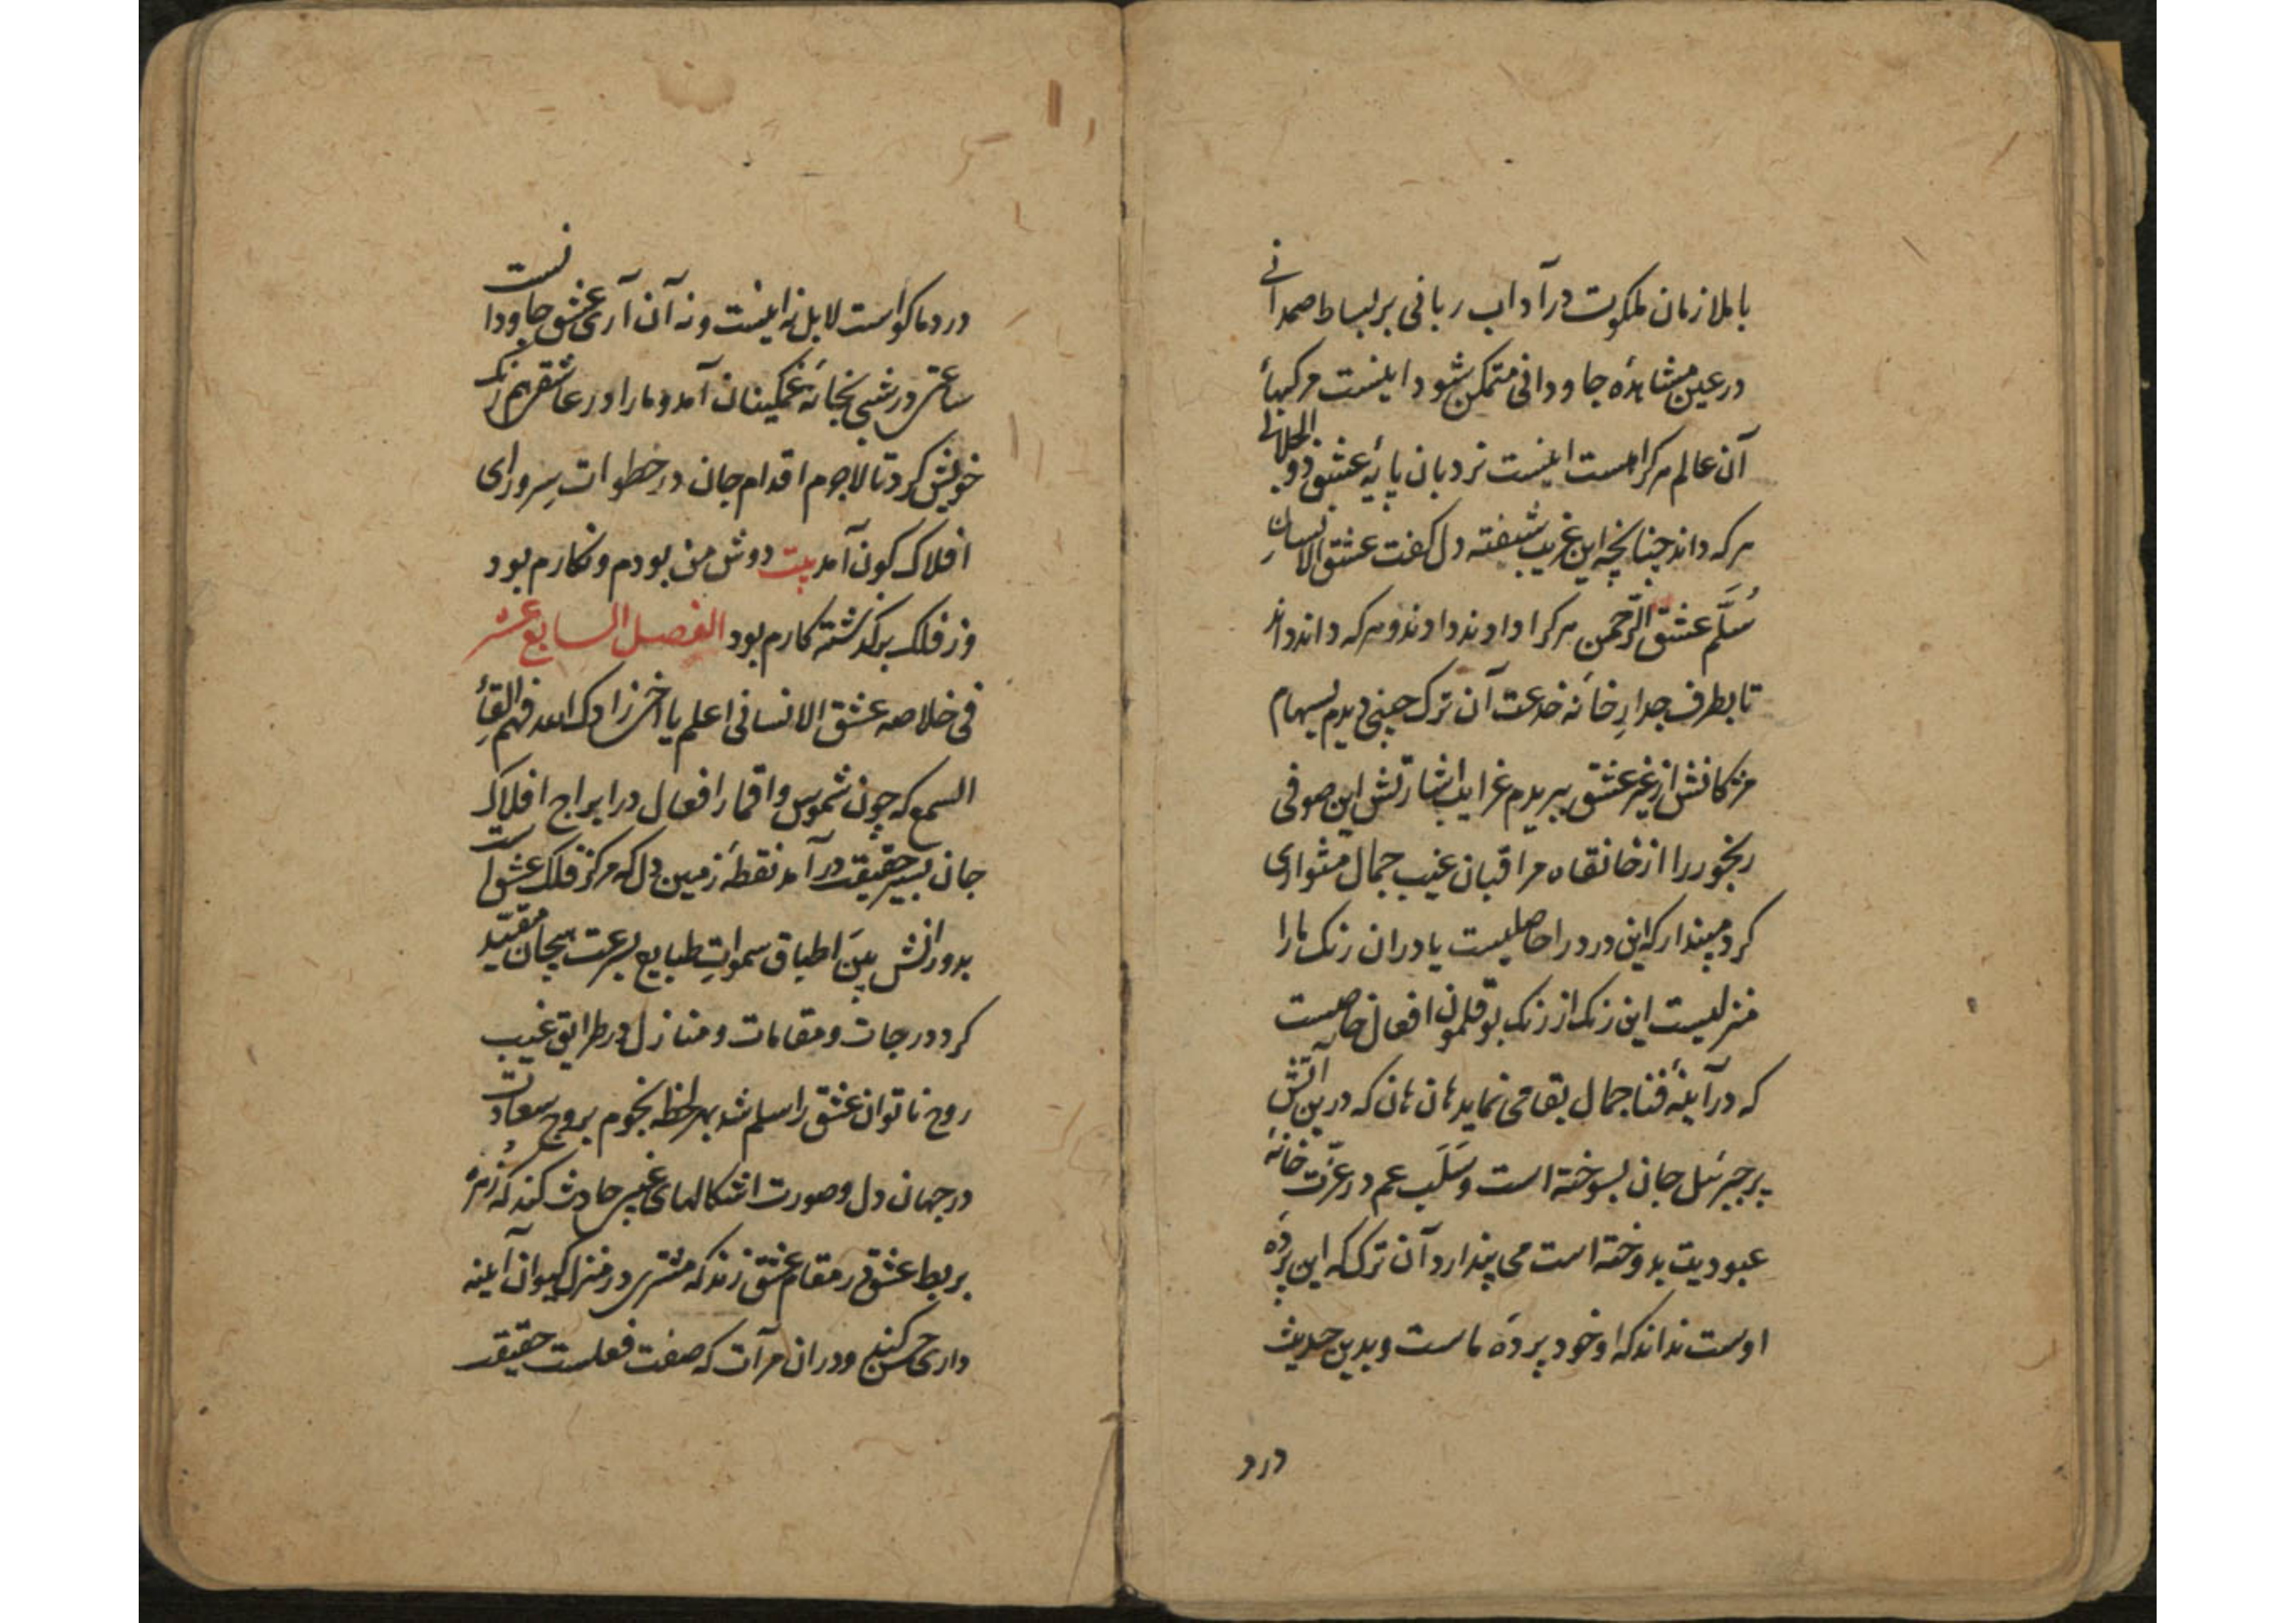 با ملازمان ملکوت در آداب ربانی بر بساط صمدانی
در عین مشاهدۀ جاودانی متمکن شود اینست مرکبهاء
آن عالم هرکرا هست اینست نردبان پایۀ عشق ذو الجلالی
هرکه داند چنانچه این غریب شیفته دل کفت عشق الانسان
سُلَّم عشق الرّحمن هرکرا دادند دادند و هرکه داند داند
تا بطرف جدارِ خانه خدعت آن ترک چینی دیدم بسهام
مژکانش از غیر عشق ببریدم غرایب اشارتش این صوفی
رنجور را از خانقاه مراقبان غیب جمال متواری
کرد مپندار که این درد را حاصلیست یا در آن رنک ما را
منزلیست این رنک از رنک بوقلمون افعال خاصیست
که در آینۀ فنا جمال بقا می نماید هان هان که درین آتش
پر جبرئیل جان بسوخته است و سَلَب عم در عزّت خانۀ
عبودیت بدوخته است می پندارد آن ترک که این پردۀ
اوست نداند که او خود پردۀ ماست و بدین حدیث
درد
درد ما کواست لا بل نه اینست و نه آن آری عشق جاودانست
ساعتی در شبی بخانۀ غمکینان آمد و ما را در عاشقی هم رنک
خویش کرد تا لاجرم اقدام جان در خطوات سِر ورای
افلاک کون آمد بیت دوش من بودم و نکارم بود
وز فلک برکذشته کارم بود الفصل السابع عشر
فی خلاصه عشق الانسانی اعلم یا اخی زادک الله فهم القاءِ
السمع که چون شموس و اقمار افعال در ابراج افلاک
جان بسیر حقیقت در آمد نقطۀ زمین دل که مرکز فلک عشق است
بدورانش بین اطباق سمواتِ طبایع بسرعت هیجان مقیّد
کرد درجات و مقامات و منازل در طرایق غیب
روح ناتوان عشق را سلم شد بهر لحظه نجوم بروج سعادت
در جهان دل و صورت اشکالهای غیبی حادث کند که زُهرۀ
بربط عشق در مقام عشق زند که مشتری در منزل کیوان آینه
داری حسن کند و در آن مرآت که صفت فعلست حقیقت